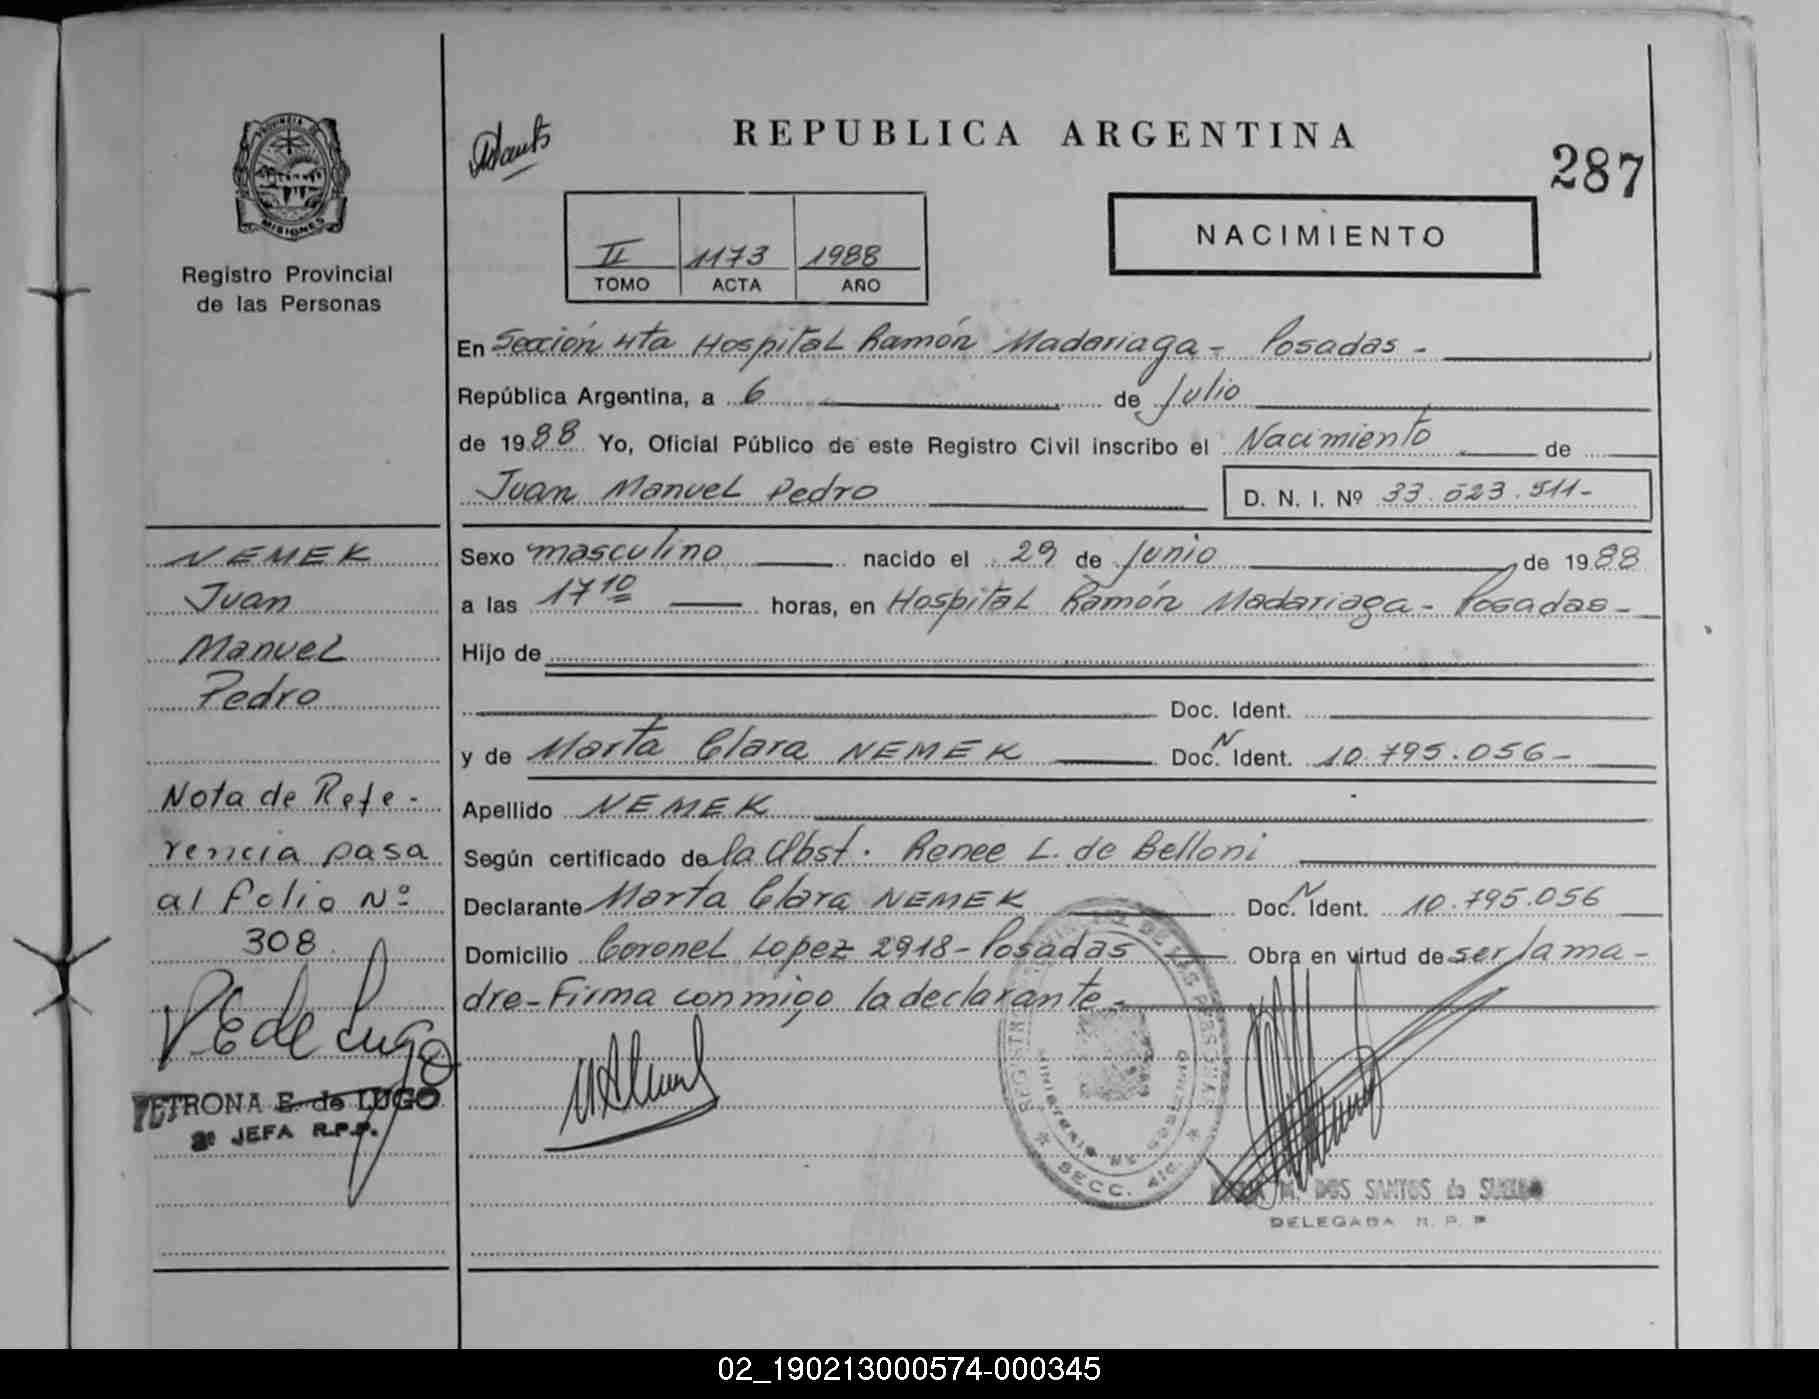 REPUBLICA ARGENTINA
287
PROVINCIA DE
MISIONES
Registro Provincial
de las Personas
NACIMIENTO
II 1173 1988
TOMO ACTA AÑO
En Sección 4ta Hospital Ramón Madariaga - Posadas -
República Argentina, a 6 de Julio
de 1988 Yo, Oficial Público de este Registro Civil inscribo el Nacimiento de
Juan Manuel Pedro
D. N. I. Nº 33.523.511-
NEMEK
Juan
Manuel
Pedro
Nota de Refe-
rencia pasa
al folio Nº
308
PE de Lugo
PETRONA E. de LUGO
2º JEFA R.P.P.
Sexo masculino nacido el 29 de Junio de 1988
a las 17 10 horas, en Hospital Ramón Madariaga - Posadas -
Hijo de
Doc. Ident.
y de Marta Clara NEMEK Doc. N Ident. 10.795.056-
Apellido NEMEK
Según certificado de la Obst. Renee L. de Belloni
Declarante Marta Clara NEMEK Doc. N Ident. 10.795.056
Domicilio Coronel Lopez 2918 - Posadas Obra en virtud de ser la ma-
dre - Firma conmigo la declarante -
SECC. 4ta
M. DOS SANTOS de
DELEGADA R. P. P
02_190213000574-000345